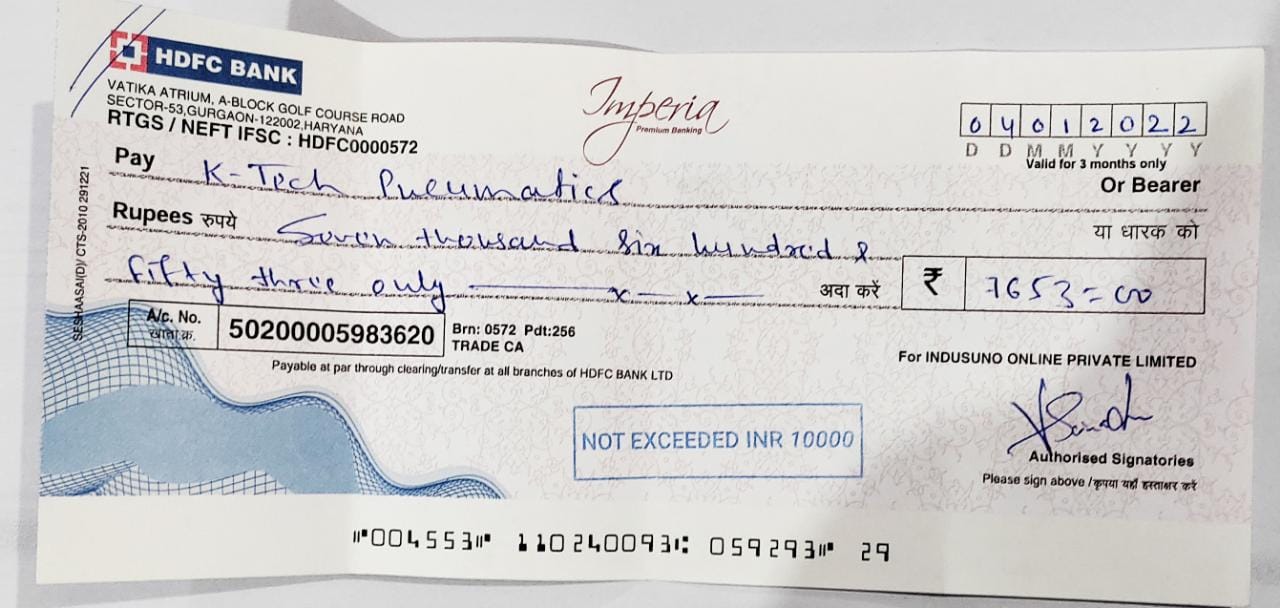 HDFC BANK
VATIKA ATRIUM, A-BLOCK GOLF COURSE ROAD
SECTOR-53,GURGAON-122002,HARYANA
RTGS / NEFT IFSC : HDFC0000572
Imperia
Premium Banking
04012022
D D M M Y Y Y Y
Valid for 3 months only
Pay K-Tech Pneumatics
Or Bearer
Rupees रुपये Seven thousand six hundred &
या धारक को
fifty three only x x
अदा करें ₹ 7653=00
A/c. No.
खाता क्र.
50200005983620
Brn: 0572 Pdt:256
TRADE CA
Payable at par through clearing/transfer at all branches of HDFC BANK LTD
For INDUSUNO ONLINE PRIVATE LIMITED
NOT EXCEEDED INR 10000
Authorised Signatories
Please sign above /कृपया यहाँ हस्ताक्षर करें
SESHAASAI(D)/ CTS-2010 291221
⑈004553⑈ 110240093⑆ 059293⑈ 29